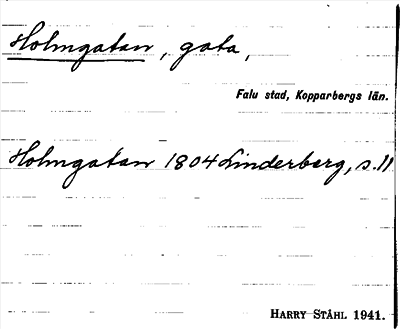 Holmgatan, gata,
Falu stad, Kopparbergs län.
Holmgatan 1804 Linderberg, s. 11
HARRY STÅHL 1941.